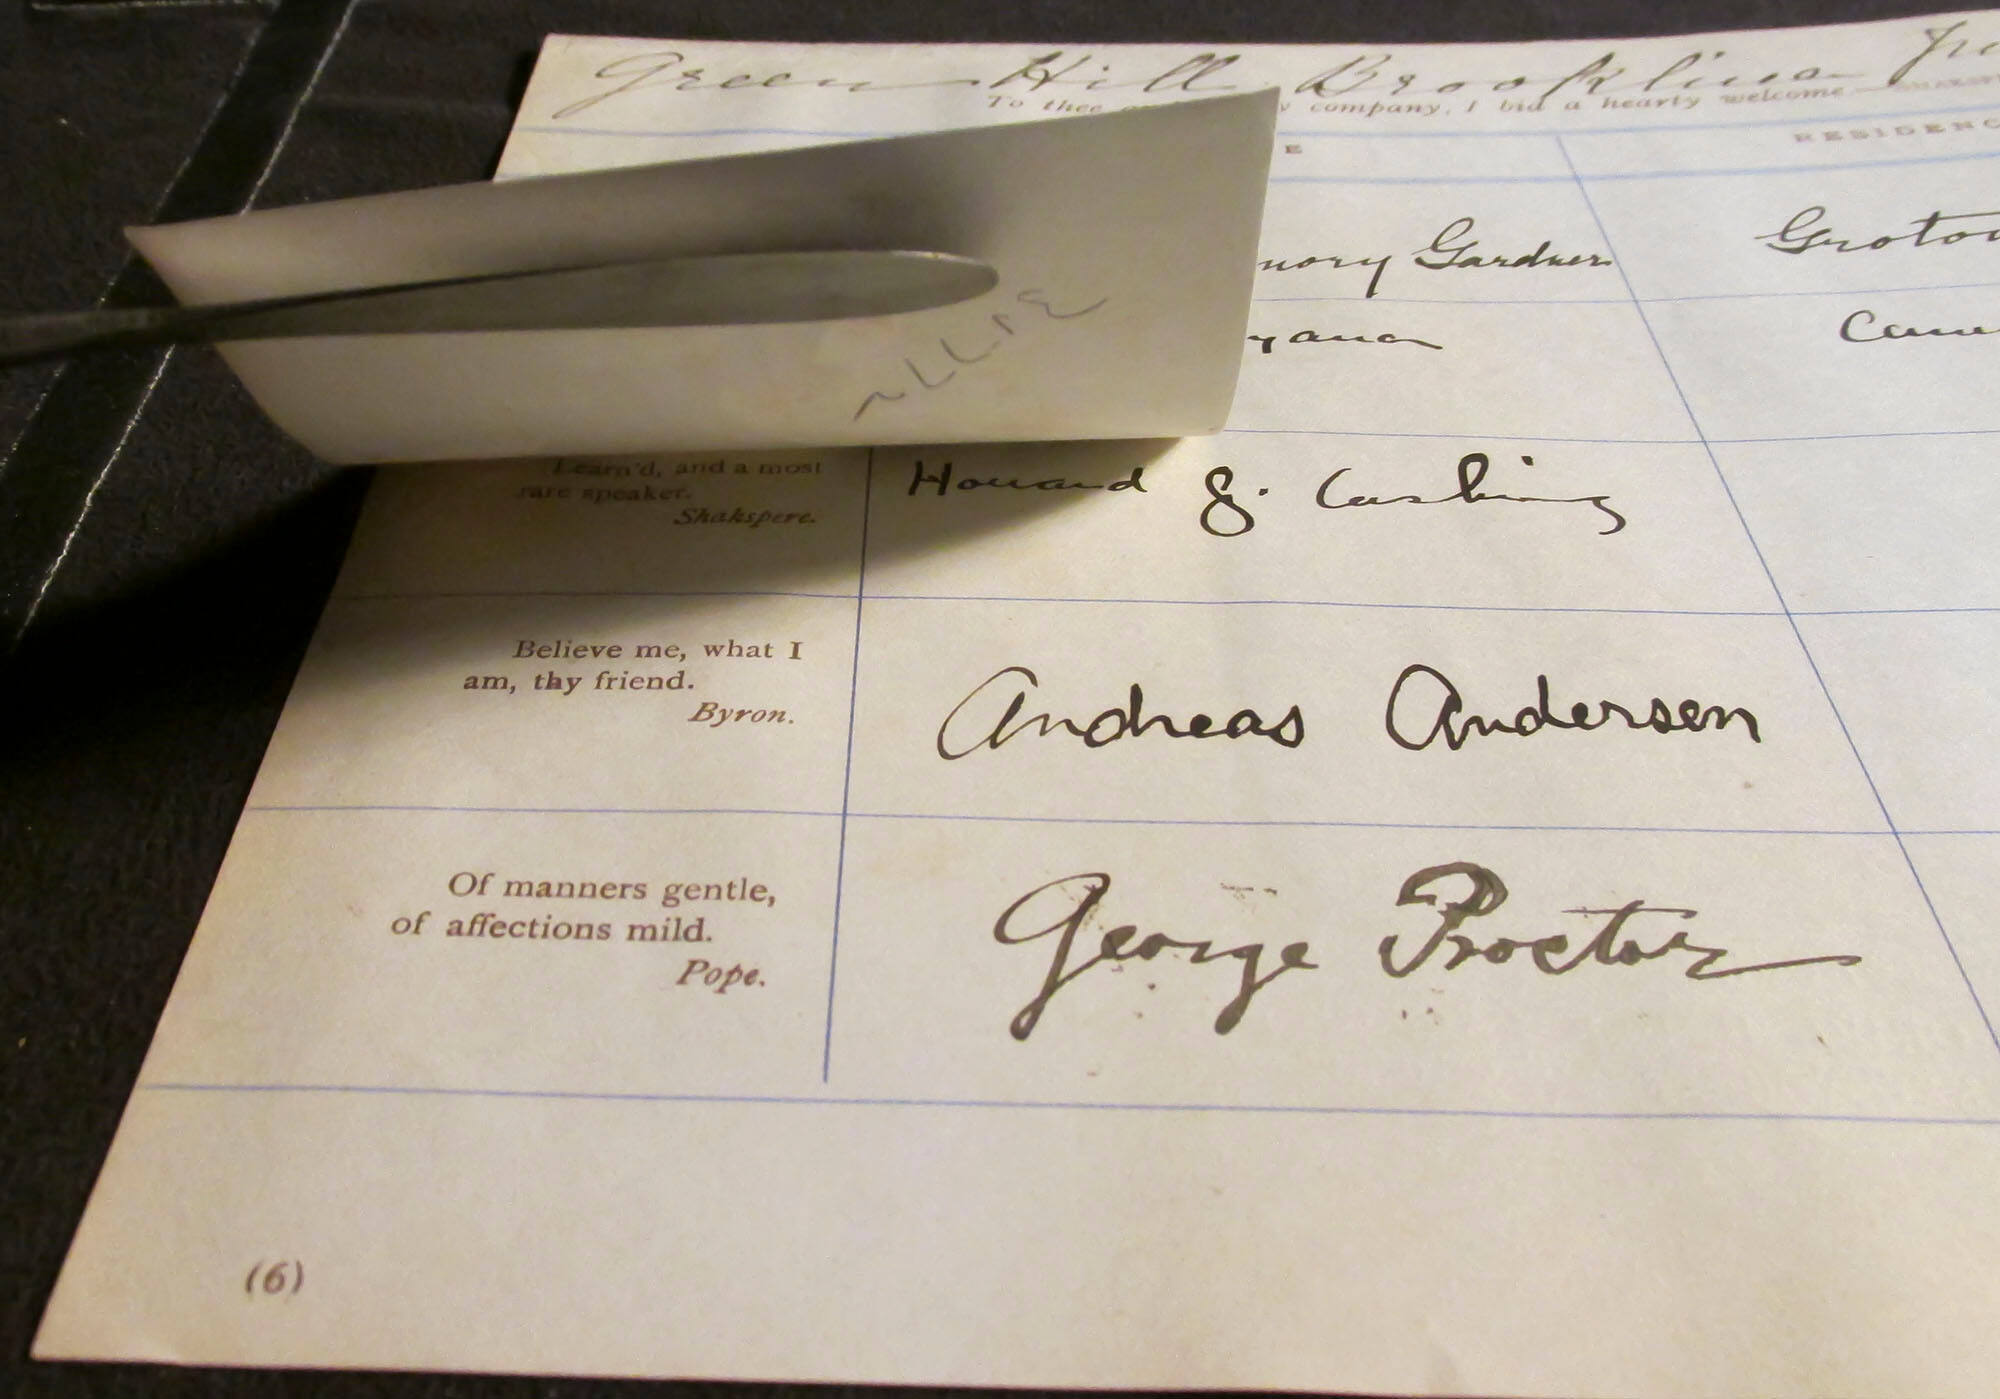 Green Hill Brookline
To thee company, I bid a hearty welcome
RESIDENC
Gardner Groton
Learn'd, and a most
rare speaker.
Shakspere.
Howard G. Cushing
Believe me, what I
am, thy friend.
Byron.
Andreas Andersen
Of manners gentle,
of affections mild.
Pope.
George Proctor
(6)